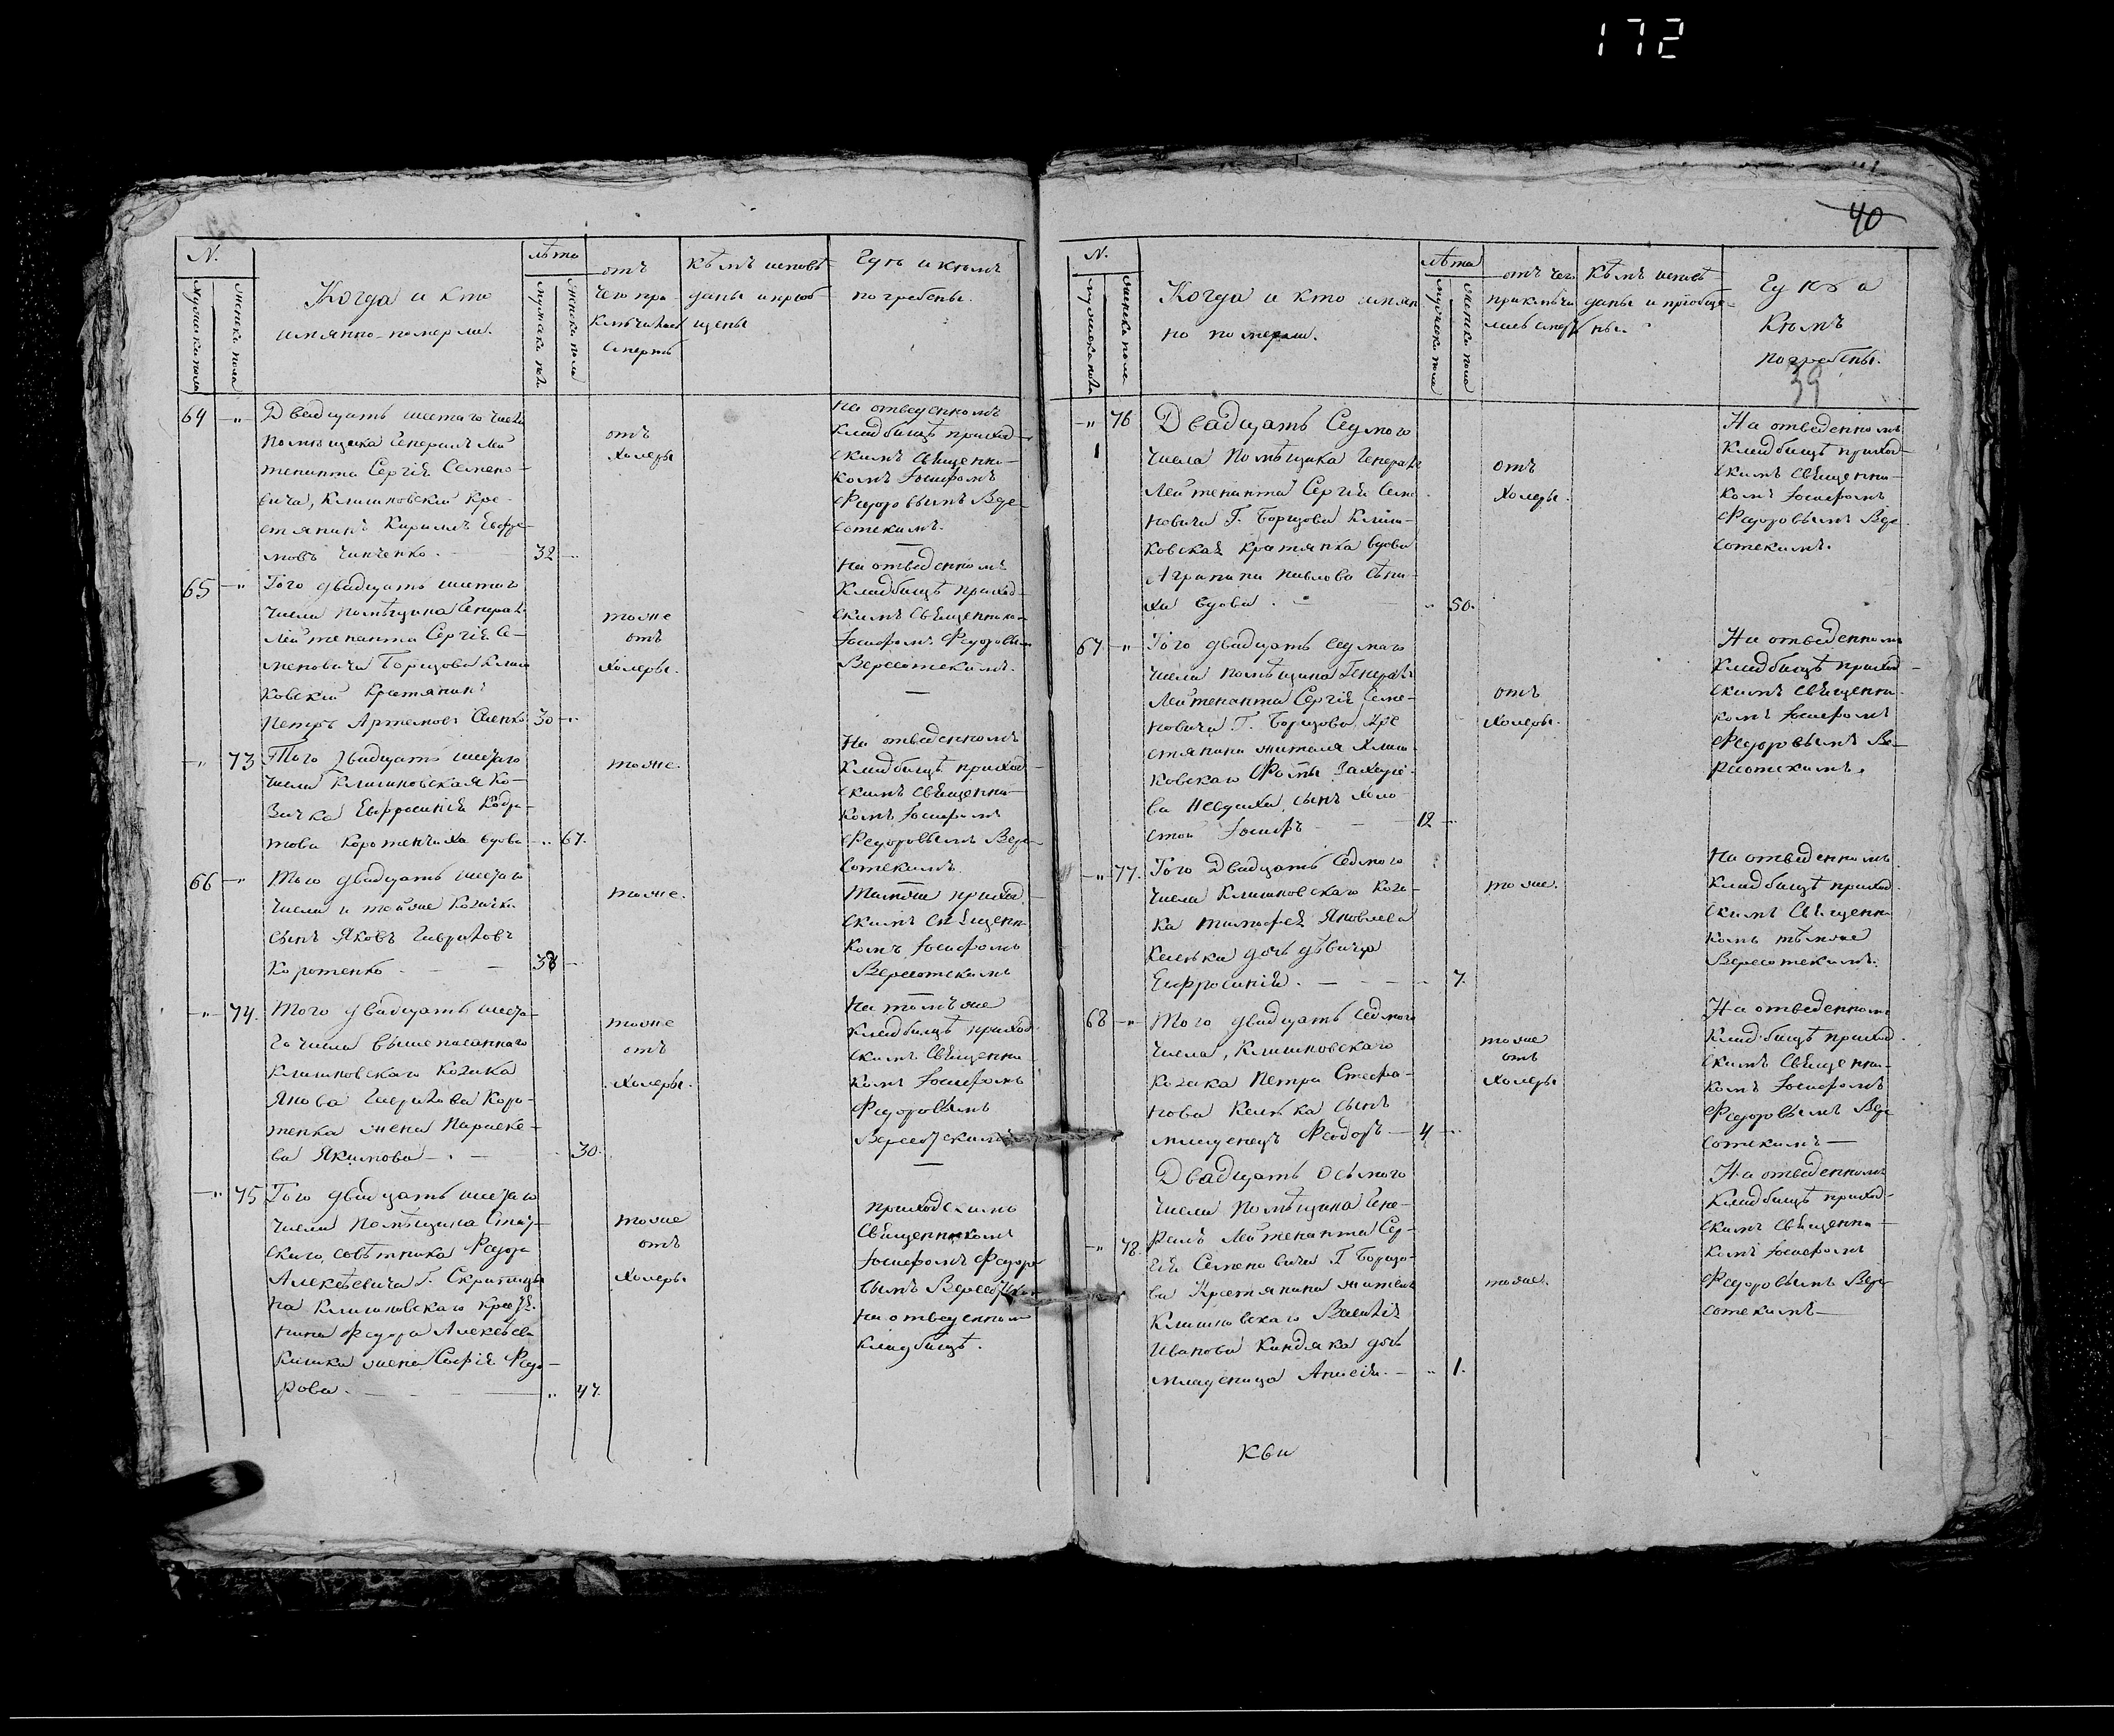 172
40
N.
мужеска пола
женска пола
Когда и кто
имянно померли.
лѣта
мужеска пола
женска пола
отъ
чего при-
ключилась
смерть
кѣмъ исповѣ-
даны и приоб-
щены
Гдѣ и кѣмъ
погребены.
64 — „ Двадцать шестаго числа
помѣщика Генералъ Лей
тенанта Сергія Семено-
вича, Клишковскій кре-
стянинъ Кирилъ
Чипченко. — 32 —
отъ
холеры
На отведенномъ
кладбищѣ приход-
скимъ священни-
комъ Іосифомъ
Федоровымъ Вере-
сотскимъ.
65 — „ Того двадцать шестаго
числа помѣщика Генералъ
Лейтенанта Сергія Се-
меновича Борщова Клиш
ковскій крестянинъ
Петръ Артемовъ 30 —
тоже
отъ
холеры.
На отведенномъ
кладбищѣ приход-
скимъ священникомъ
Іосифомъ Федоровымъ
Вересотскимъ.
— „ 73 Того двадцать шестаго
числа Клишковская ко-
зачка Евфросинія
това Коротенчиха вдова — „ 67.
тоже.
На отведенномъ
кладбищѣ приход-
скимъ священни-
комъ Іосифомъ
Федоровымъ Вере-
сотскимъ.
66 — „ Того двадцать шестаго
числа и тойже козачки
сынъ Яковъ Гавриловъ
Коротенко. — — 38 —
тоже.
Тамже приход-
скимъ священни-
комъ Іосифомъ
Вересотскимъ
— „ — 74. Того двадцать шеста-
го числа вышеписаннаго
Клишковскаго козака
Якова Гаврилова Коро-
тенка жена Параске-
ва Якимова — . — 30.
тоже
отъ
холеры.
На томъже
кладбищѣ приход
скимъ священни-
комъ Іосифомъ
Федоровымъ
Вересотскимъ
— „ 75 Того двадцать шестаго
числа помѣщика Стат-
скаго совѣтника Федора
Алексѣевича Г. Скрипицы
на Клишковскаго крестя-
нина Федора Алексѣева
жена Софія Федо-
рова. — — „ 47.
тоже
отъ
холеры
приходскимъ
священникомъ
Іосифомъ Федоро
вымъ Вересотскимъ
на отведенномъ
кладбищѣ.
N.
мужеска пола
женска пола
Когда и кто имян
но померли.
лѣта
мужеска пола
женска пола
отъ чего
приключи
лась смерть
Кѣмъ исповѣ
даны и приобще-
ны.
Гдѣ и
Кѣмъ
погребены.
39
— „ 76 Двадцать Седмого
1
числа помѣщика Генералъ
Лейтенанта Сергія Семе-
новича Г. Борщова Клиш-
ковская крестянка вдова
Агрипина Павлова
вдова. — „ 50.
отъ
холеры.
На отведенномъ
кладбищѣ приход-
скимъ священни-
комъ Іосифомъ
Федоровымъ Вере
сотскимъ.
67 — „ Того двадцать седмаго
числа помѣщика Генералъ
Лейтенанта Сергія Семе-
новича Г. Борщова кре
стянина жителя Клиш-
ковскаго Фомы Захарье-
ва сынъ холо-
стой Іосифъ — — 12 —
отъ
холеры.
На отведенномъ
кладбищѣ приход-
скимъ священни-
комъ Іосифомъ
Федоровымъ Ве-
ресотскимъ.
— „ 77. Того Двадцать седмого
числа Клишковскаго коза-
ка Тимофея Яковлева
дочь дѣвица
Евфросинія. — — — 7.
тоже.
На отведенномъ
кладбищѣ приход.
скимъ священни
комъ тѣмже
Вересотскимъ.
68 — „ Того двадцать седмого
числа, Клишковскаго
козака Петра Стефа-
нова сынъ
младенецъ Феодоръ — 4 —
тоже
отъ
холеры
На отведенномъ
кладбищѣ приход-
скимъ священни-
комъ Іосифомъ
Федоровымъ Вере
сотскимъ —
Двадцать осьмого
числа помѣщика Гене-
— „ 78. ралъ Лейтенанта Сер-
гія Семеновича Г. Борщо-
ва крестянина жителя
Клишковскаго Василія
Иванова Кандяка дочь
младеница Анисія. — „ 1.
тоже.
На отведенномъ
кладбищѣ приход-
скимъ священни-
комъ Іосифомъ
Федоровымъ Вере-
сотскимъ —